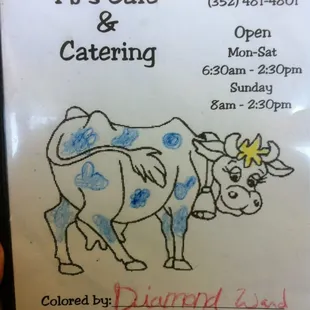 (352) 481-4801
&
Catering
Open
Mon-Sat
6:30am - 2:30pm
Sunday
8am - 2:30pm
Colored by: Diamond Ward